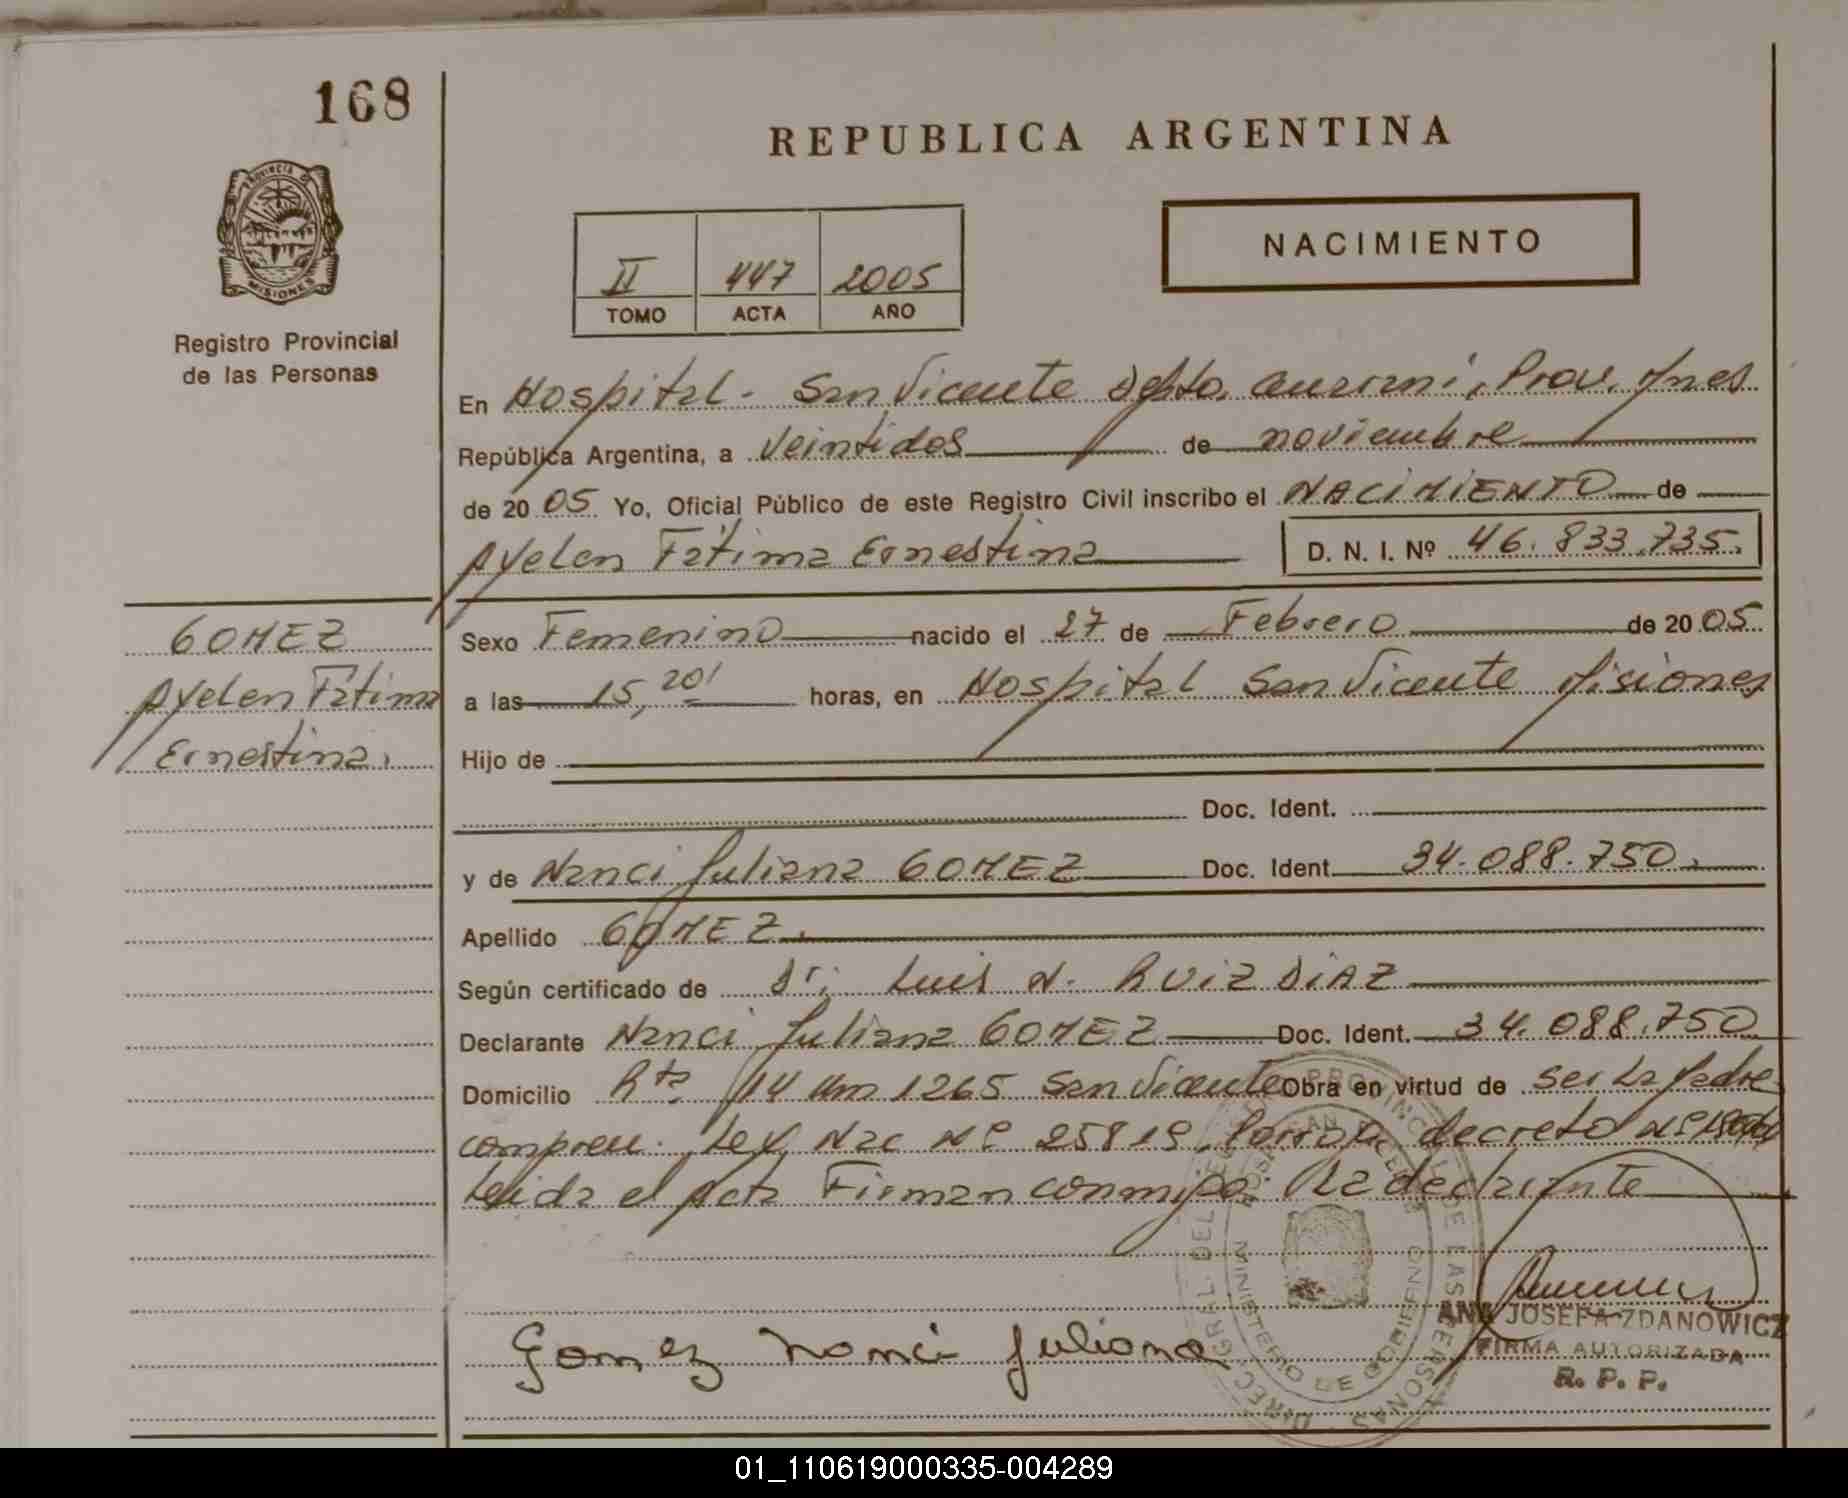 168
REPUBLICA ARGENTINA
PROVINCIA DE
MISIONES
Registro Provincial
de las Personas
NACIMIENTO
II 447 2005
TOMO ACTA AÑO
En Hospital - San Vicente Dpto. Guarani, Prov. Mnes
República Argentina, a Veintidos de noviembre
de 20 05 Yo, Oficial Público de este Registro Civil inscribo el NACIMIENTO de
Ayelen Fátima Ernestina D. N. I. Nº 46.833.735.
GOMEZ
Ayelen Fátima
Ernestina.
Sexo Femenino nacido el 27 de Febrero de 20 05
a las 15,20' horas, en Hospital San Vicente Misiones
Hijo de
Doc. Ident.
y de Nanci Juliana GOMEZ Doc. Ident. 34.088.750.
Apellido GOMEZ.
Según certificado de Dr. Luis N. RUIZ DIAZ
Declarante Nanci Juliana GOMEZ Doc. Ident. 34.088.750
Domicilio Rta 14 Km 1265 San Vicente Obra en virtud de ser la Madre
Ley Nac Nº 25819 decreto Nº
Leida el Acta Firman conmigo: La declarante
Gomez Nanci Juliana
ANA JOSEFA ZDANOWICZ
FIRMA AUTORIZADA
R. P. P.
MINISTERIO DE GOBIERNO
01_110619000335-004289